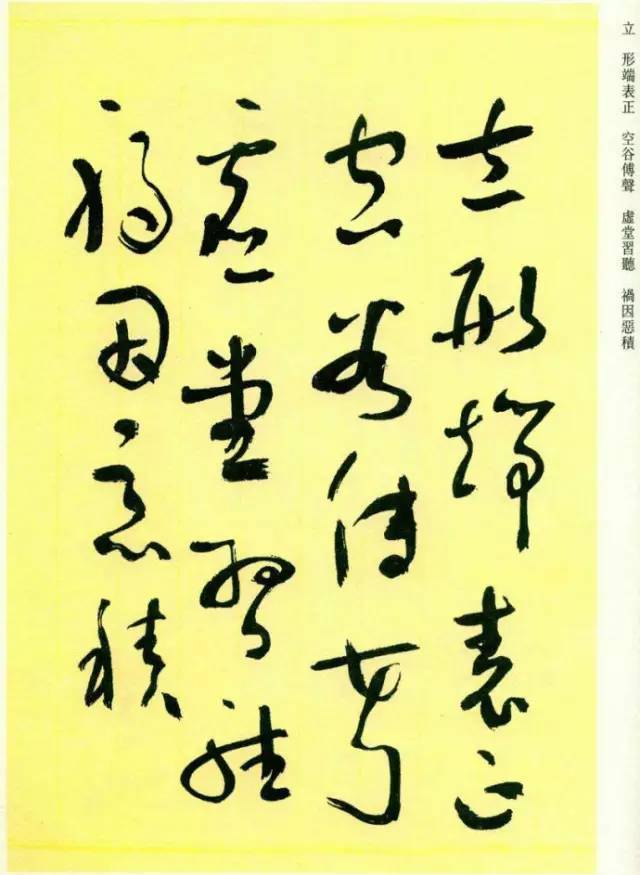 立 形端表正 空谷傅聲 虛堂習聽 禍因惡積
立形端表正
空谷傳聲
虛堂習聽
禍因惡積